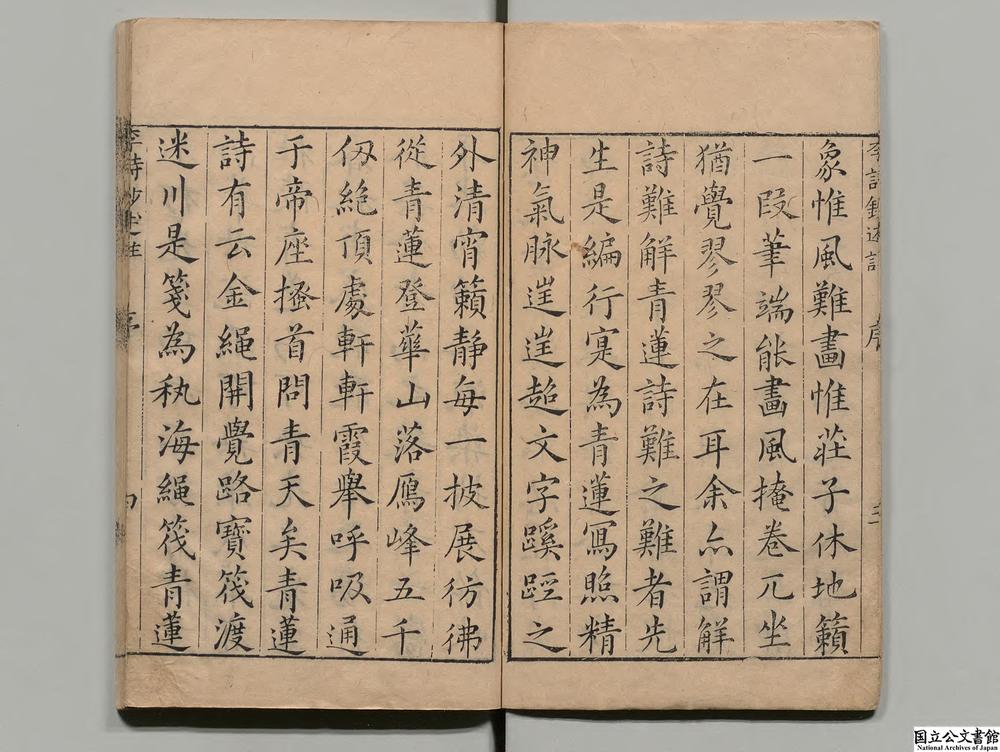 象惟風難畫惟莊子休地籟
一段筆端能畫風掩卷兀坐
猶覺翏翏之在耳余亦謂解
詩難解青蓮詩難之難者先
生是編行寔為青蓮寫照精
神氣脉𨓏𨓏超文字蹊踁之
外清宵籟静每一披展彷彿
從青蓮登華山落鴈峰五千
仭絶頂處軒軒霞舉呼吸通
于帝座搔首問青天矣青蓮
詩有云金繩開覺路寶筏渡
迷川是箋為執海繩筏青蓮
国立公文書館
National Archives of Japan